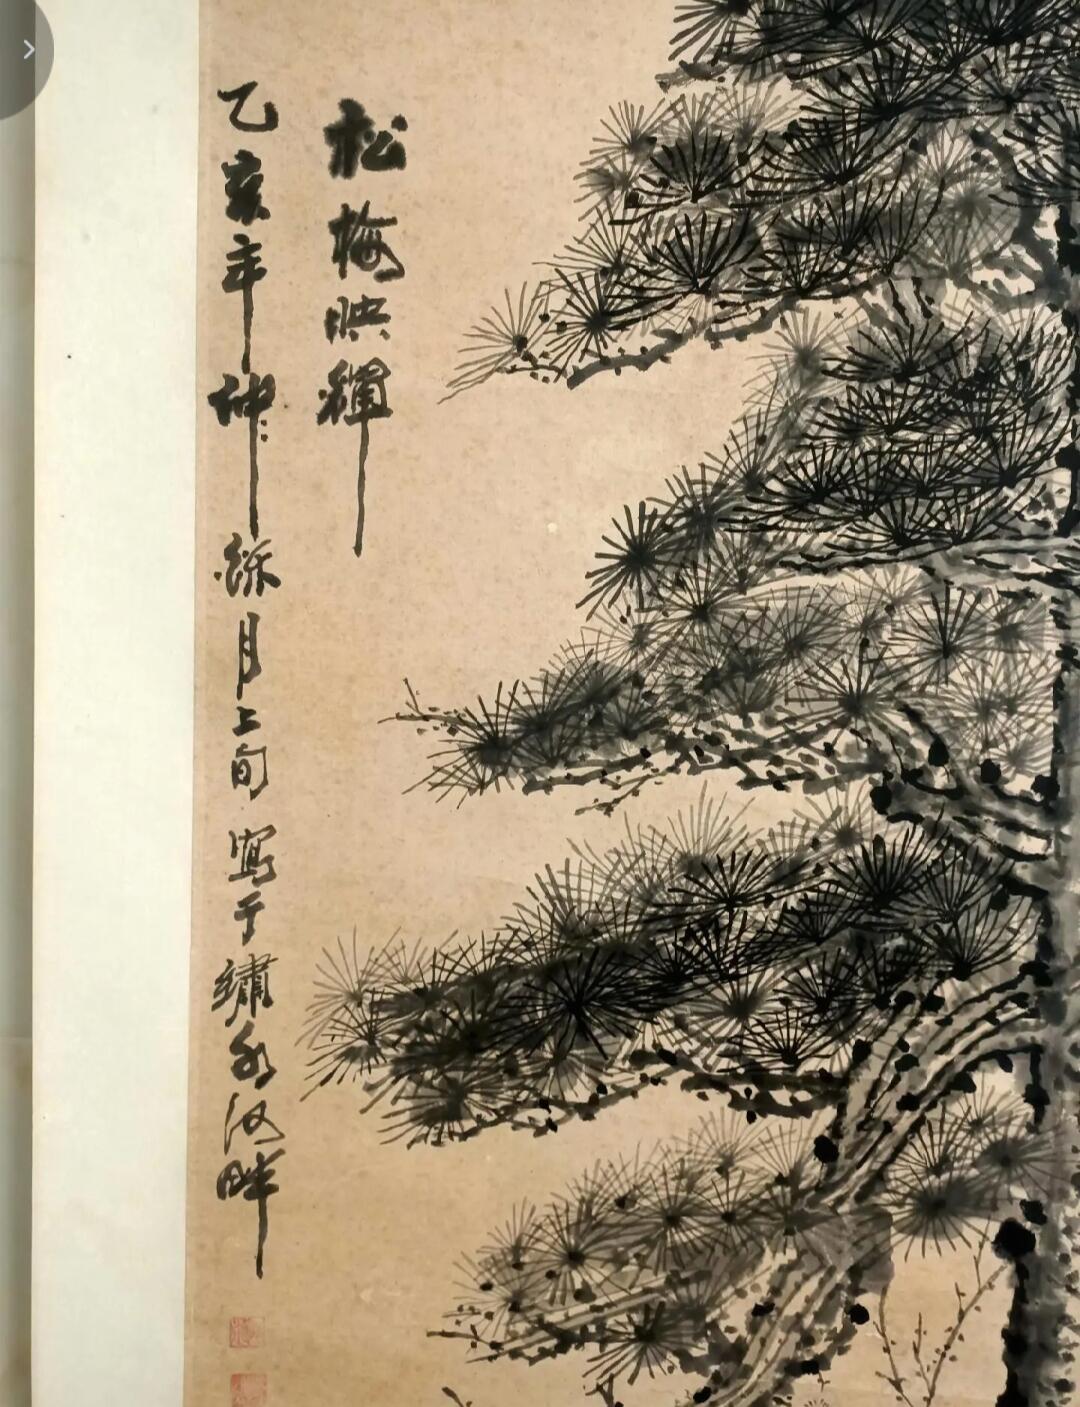 松梅映輝
乙亥年仲秌月上旬寫于繡水河畔